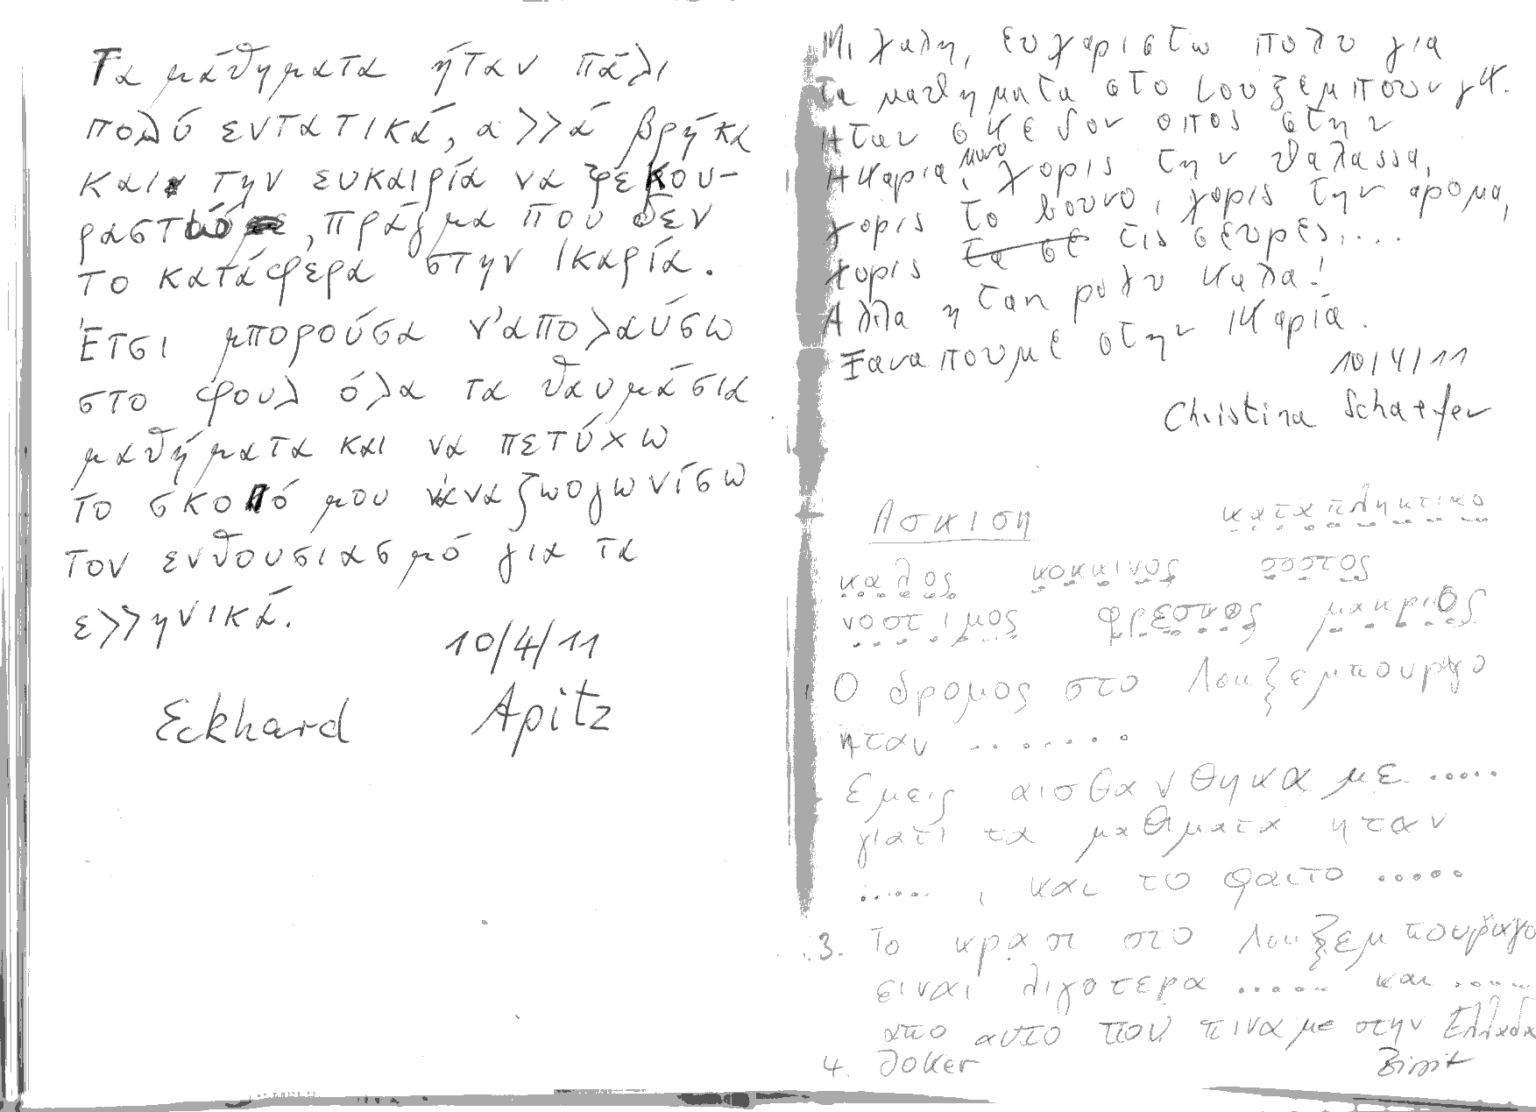 Τα μάθηματα ήταν πάλι
πολύ εντατικά, αλλά βρήκα
και την ευκαιρία να ξεκου-
ραστώ, πράγμα που δεν
το κατάφερα στην Ικαρία.
Έτσι μπορούσα ν'απολαύσω
στο φουλ όλα τα θαυμάσια
μαθήματα και να πετύχω
το σκοπό μου ν'αναζωογωνίσω
τον ενθουσιασμό για τα
ελληνικά.
10/4/11
Eckhard Apitz
Μιχαλη, ευχαριστω πολυ για
τα μαθηματα στο Λουξεμπουργκ.
Ηταν σκεδον οπος στην
Ηκαρια, μονο χορις την θαλασσα,
χορις το βουνο, χορις την αρομα,
χορις τα σε τις σευρες....
Αλλα ηταν πολυ καλα!
Ξαναπουμε στην Ικαρία.
10/4/11
Christina Schaefer
Ασκιση καταπληκτικο
καλος κοκκινος σοστος
νοστιμος φρεσκος μακριος
Ο δρομος στο Λουξεμπουργο
ηταν ........
Εμεις αισθανθηκαμε .....
γιατι τα μαθιματα ηταν
....., και το φαιτο .....
3. Το κρασι στο Λουξεμπουργο
ειναι λιγοτερα ..... και .....
απο αυτο που πιναμε στην Ελλαδα
4. Joker Birgit